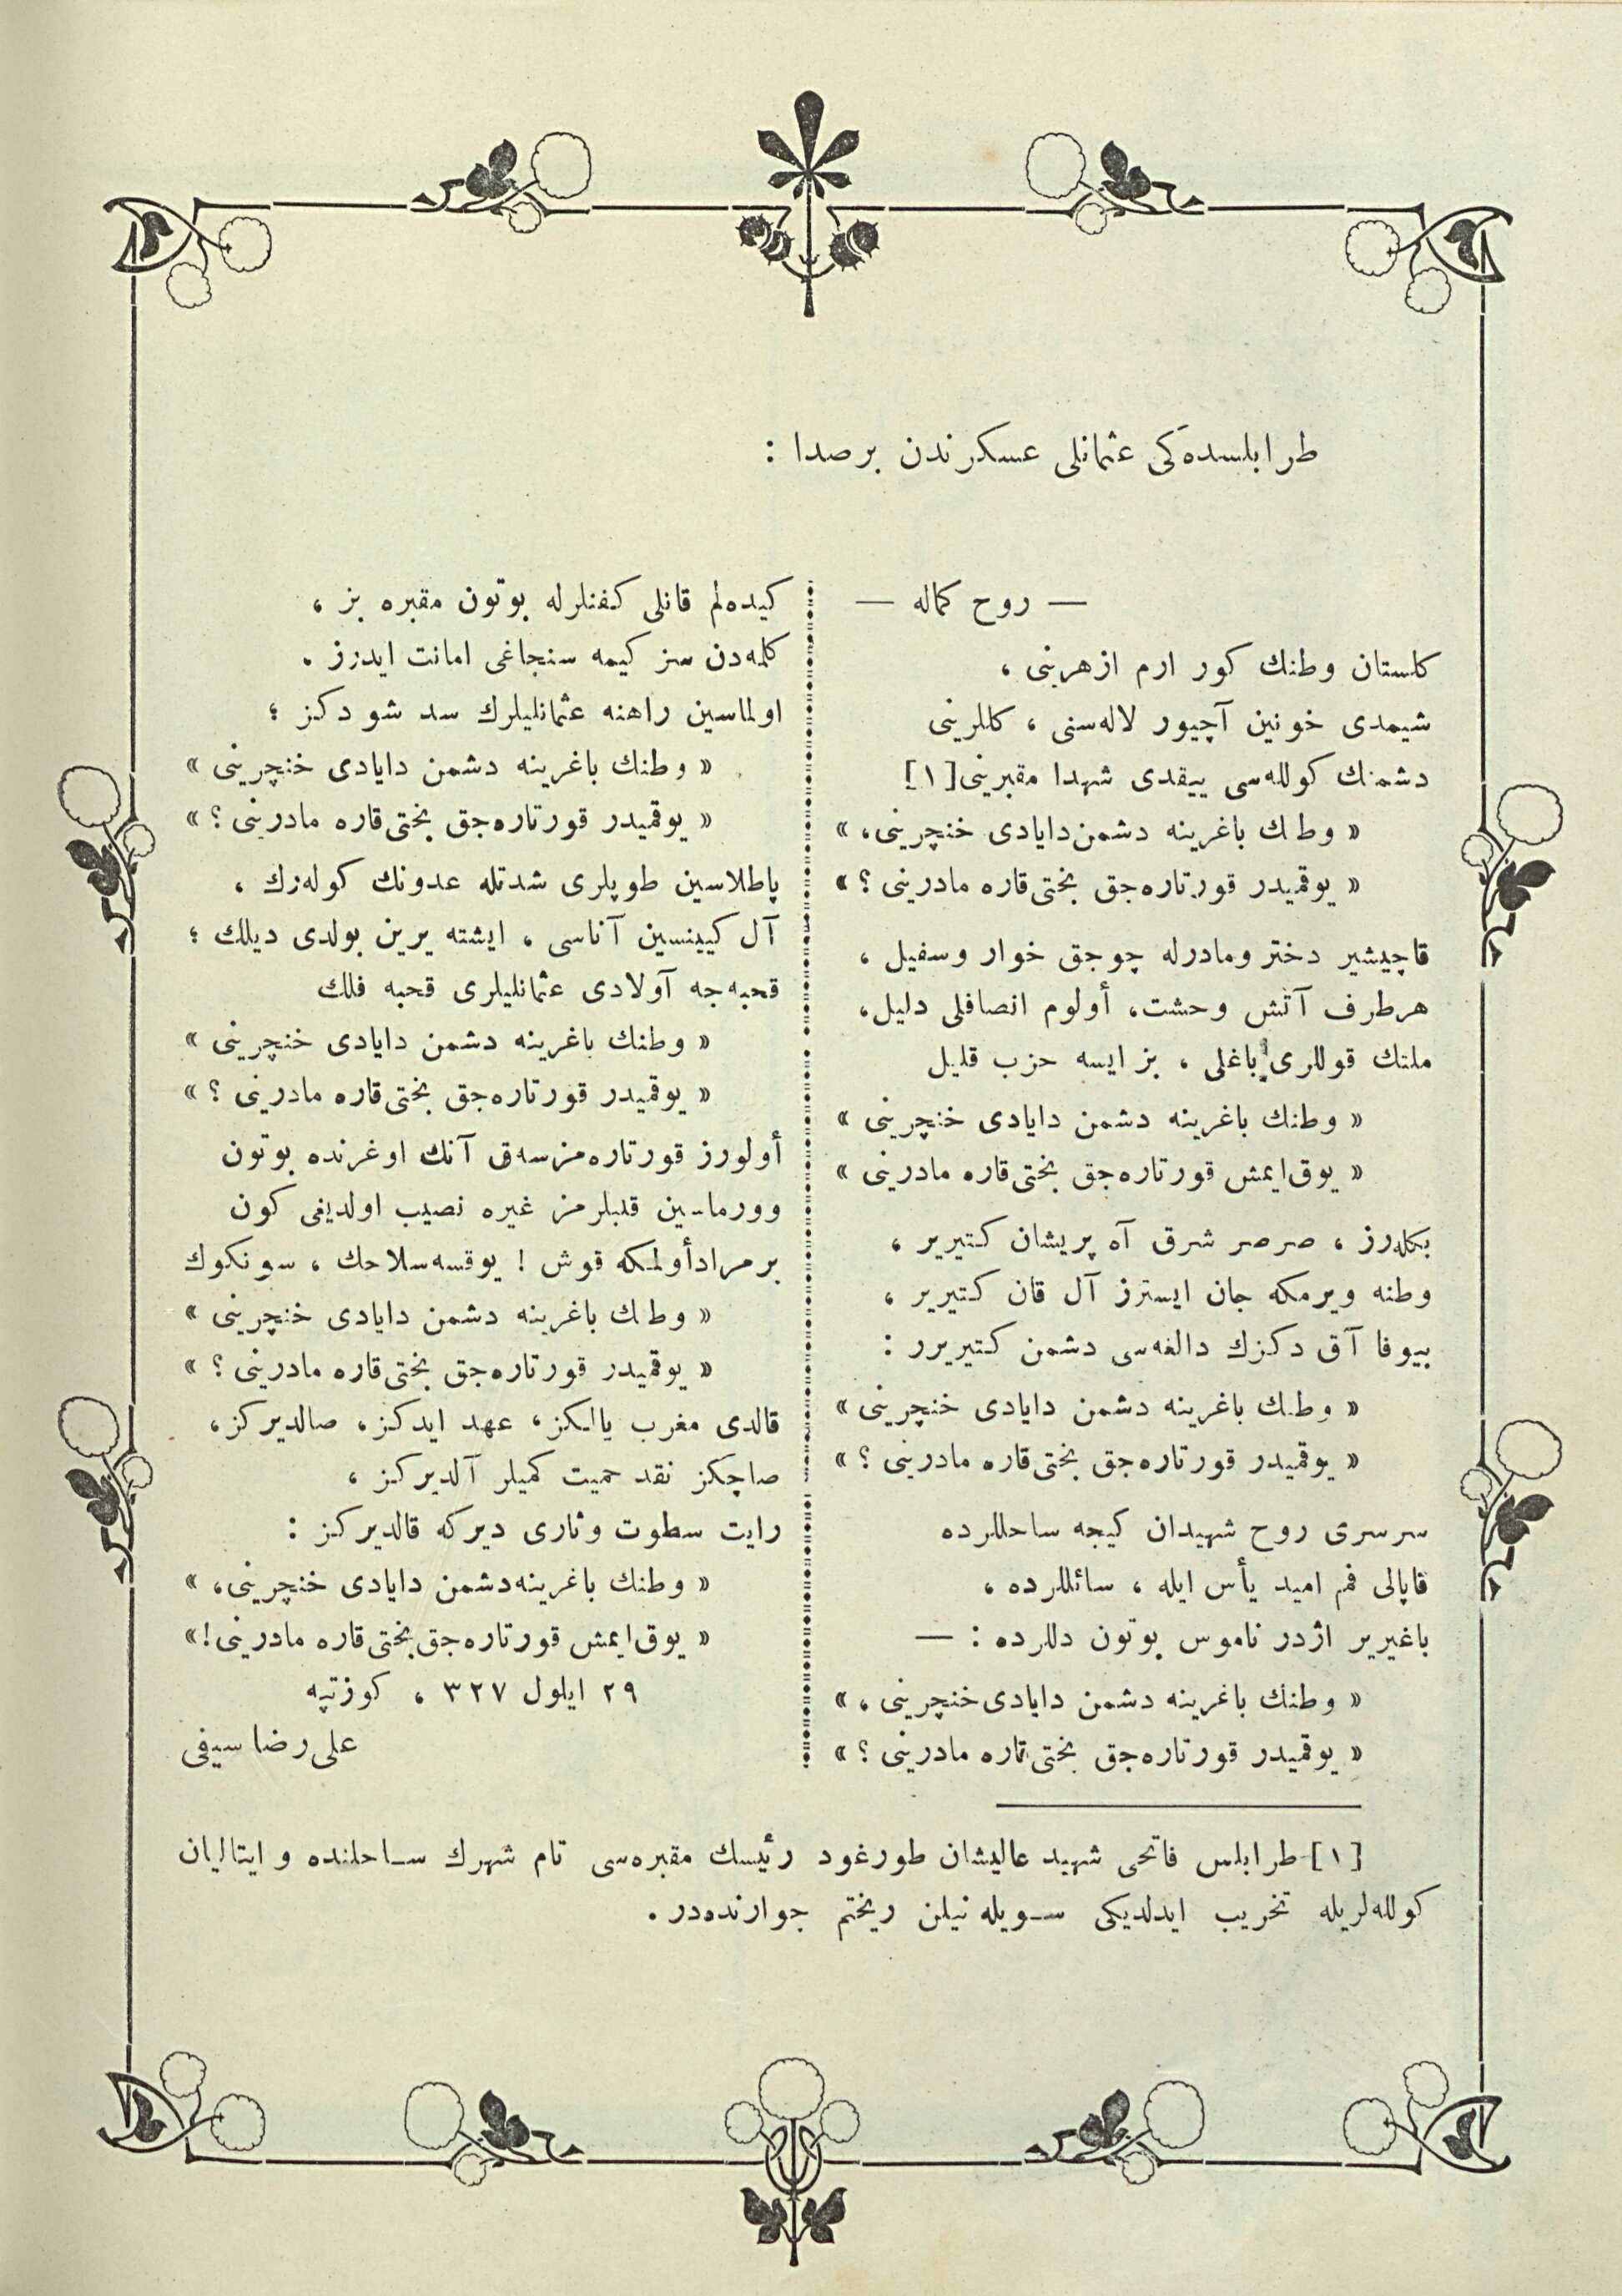 طرابلسده‌كی عثمانلی عسكرندن برصدا :
— روح كماله —
كلستان وطنك كور ارم ازهرینی ،
شیمدی خونین آچیور لاله‌سنی ، كللرینی
دشمنك كولله‌سی ییقدی شهدا مقبرینی [١]
« وطنك باغرینه دشمن دایادی خنچرینی، »
« یوقمیدر قورتاره‌جق بختی قاره مادرینی ؟ »
قاچیشیر دختر ومادرله چوجق خوار وسفیل ،
هرطرف آتش وحشت، أولوم انصافلی دلیل،
ملتك قوللری باغلی ، بز ایسه حزب قلیل
« وطنك باغرینه دشمن دایادی خنچرینی »
« یوق‌ایمش قورتاره‌جق بختی قاره مادرینی »
بكله‌رز ، صرصر شرق آه پریشان كتیریر ،
وطنه ویرمكه جان ایسترز آل قان كتیریر ،
بیوفا آق دكزك دالغه‌سی دشمن كتیریرر :
« وطنك باغرینه دشمن دایادی خنچرینی »
« یوقمیدر قورتاره‌جق بختی قاره مادرینی ؟ »
سرسری روح شهیدان كیجه ساحللرده
قاپالی فم امید یأس ایله ، سائللرده ،
باغیریر اژدر ناموس بوتون دللرده : —
« وطنك باغرینه دشمن دایادی خنچرینی ، »
« یوقمیدر قورتاره‌جق بختی قاره مادرینی ؟ »
كیده‌لم قانلی كفنلرله بوتون مقبره بز ،
كلمه‌دن سز كیمه سنجاغی امانت ایدرز .
اولماسین راهنه عثمانلیلرك سد شو دكز ؛
« وطنك باغرینه دشمن دایادی خنچرینی »
« یوقمیدر قورتاره‌جق بختی قاره مادرینی ؟ »
پاطلاسین طوپلری شدتله عدونك كوله‌رك ،
آل كیینسین آناسی ، ایشته یرین بولدی دیلك ؛
قحبه‌جه آولادی عثمانلیلری قحبه فلك
« وطنك باغرینه دشمن دایادی خنچرینی »
« یوقمیدر قورتاره‌جق بختی قاره مادرینی ؟ »
أولورز قورتاره‌مزسه‌ق آنك اوغرنده بوتون
وورماسین قلبلرمز غیره نصیب اولدیغی كون
برمراد أولمكه قوش ! یوقسه سلاحك ، سونكوك
« وطنك باغرینه دشمن دایادی خنچرینی »
« یوقمیدر قورتاره‌جق بختی قاره مادرینی ؟ »
قالدی مغرب یالكز، عهد ایدكز، صالدیركز،
صاچكز نقد حمیت كمیلر آلدیركز ،
رایت سطوت وثاری دیركه قالدیركز :
« وطنك باغرینه دشمن دایادی خنچرینی، »
« یوق‌ایمش قورتاره‌جق بختی قاره مادرینی ! »
٢٩ ایلول ٣٢٧ ، كوزتپه
علی رضا سیفی
[١] طرابلس فاتحی شهید عالیشان طورغود رئیسك مقبره‌سی تام شهرك ساحلنده و ایتالیان
كولله‌لریله تخریب ایدلدیكی سویله‌نیلن ریختم جوارنده‌در .